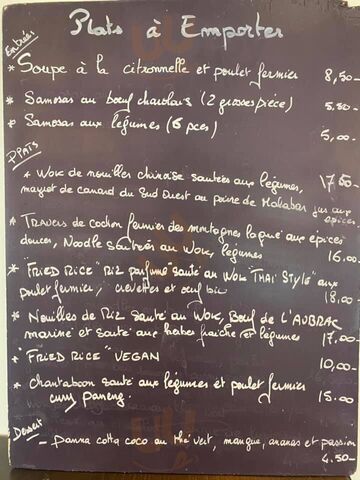 Plats à Emporter
Entrées
* Soupe à la citronnelle et poulet fermier 8,50-
* Samosas au bœuf charolais (2 grosses pièce) 5.50-
* Samosa aux légumes (6 pces) 5,00-
PLATS
* Wok de nouilles chinoise sautées aux légumes, 17.50-
magret de canard du Sud Ouest au poivre de Malabar jus aux épices
* Travers de cochon fermier des montagnes laqué aux épices
douces, Noodle sautées au Wok, légumes 16.00-
* "FRIED RICE" RIZ parfumé sauté au Wok "THAÏ STYLE" aux
poulet fermier, crevettes et œuf bio 18,00-
* Nouilles de RIZ sauté au WOK, Bœuf de L'AUBRAC
mariné et sauté aux herbes fraîche et légumes 17,00-
* "FRIED RICE" VEGAN 10,00-
* Chantaboon sauté aux légumes et poulet fermier
curry paneng. 15.00-
Dessert
- Panna cotta coco au thé vert, mangue, ananas et passion
4.50-